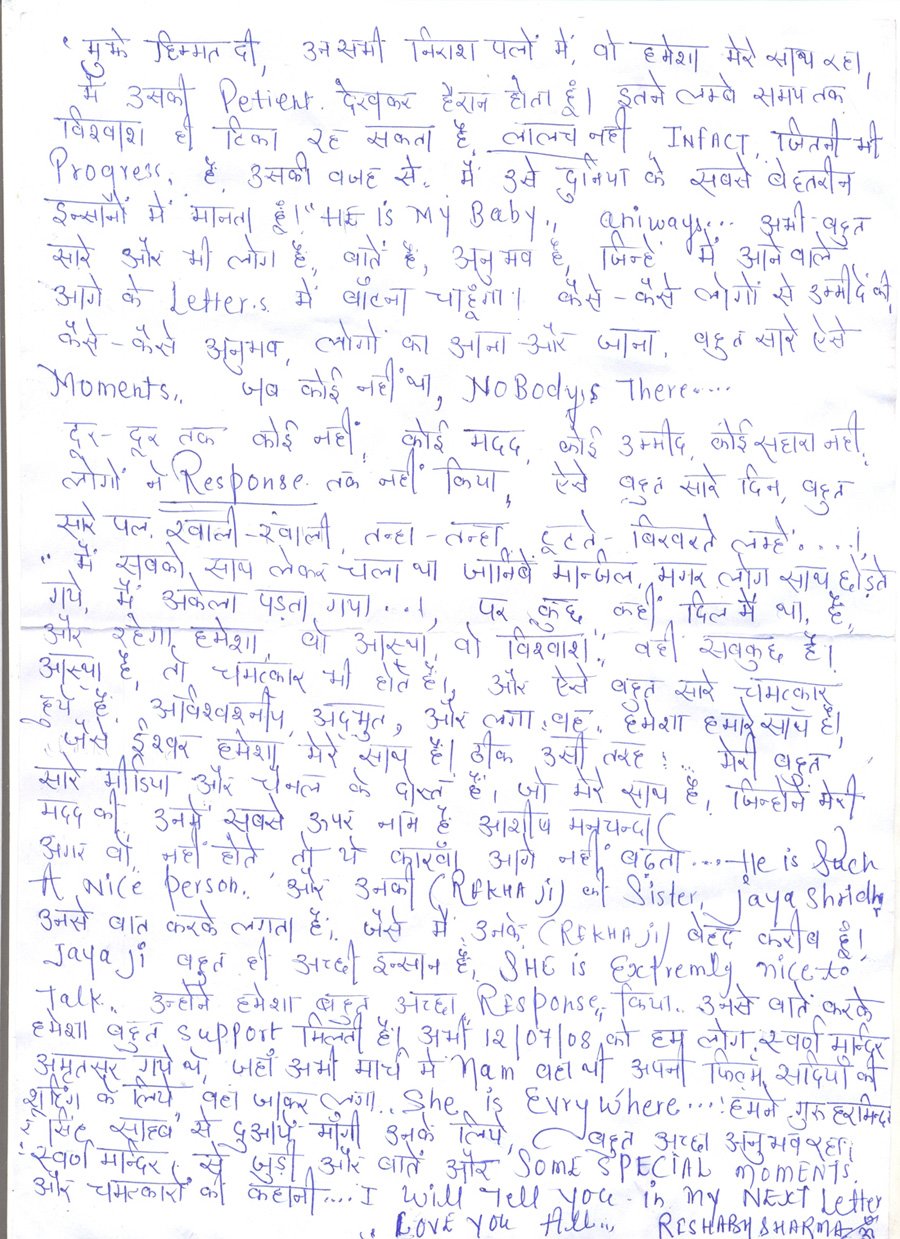 "मुझे हिम्मत दी, उन सभी निराश पलों में, वो हमेशा मेरे साथ रहा,
मैं उसकी Petient. देखकर हैरान होता हूँ। इतने लम्बे समय तक
विश्वाश ही टिका रह सकता है, लालच नहीं, INFACT, जितनी भी
Progress, है, उसकी वजह से, मैं उसे दुनिया के सबसे बेहतरीन
इन्सानों में मानता हूँ।" HE is My Baby,, aniways... अभी बहुत
सारे और भी लोग हैं, बातें हैं, अनुभव हैं, जिन्हें मैं आने वाले
आगे के Letters में बाँटना चाहूँगा। कैसे-कैसे लोगों से उम्मीदें की,
कैसे-कैसे अनुभव, लोगों का आना और जाना, बहुत सारे ऐसे
Moments,, जब कोई नहीं था, NoBody,s There....
दूर-दूर तक कोई नहीं, कोई मदद, कोई उम्मीद, कोई सहारा नहीं,
लोगों ने Response तक नहीं किया, ऐसे बहुत सारे दिन, बहुत
सारे पल, खाली-खाली, तन्हा-तन्हा, टूटते-बिखरते लम्हें....!,
"मैं सबको साथ लेकर चला था जानिबें मान्जिल, मगर लोग साथ छोड़ते
गये मैं अकेला पड़ता गया...!, पर कुछ कहीं दिल में था, है,
और रहेगा हमेशा, वो आस्था, वो विश्वाश,, वही सबकुछ है।
आस्था है, तो चमत्कार भी होते हैं।, और ऐसे बहुत सारे चमत्कार
हुये हैं, अद्भुत, और लगा, वह, हमेशा हमारे साथ है।
जैसे ईश्वर हमेशा मेरे साथ है। ठीक उसी तरह :.. मेरी बहुत
सारे मीडिया और चैनल के दोस्त हैं, जो मेरे साथ हैं, जिन्होंने मेरी
मदद की, उनमें सबसे ऊपर नाम है आशीष मनचन्दा
अगर वो, नहीं होते, तो ये कारवाँ आगे नहीं बढ़ता.... He is Such
A nice person. और उनकी (REKHA ji) की Sister, Jaya Shridhr
उनसे बात करके लगता है, जैसे मैं उनके (REKHA ji) बेहद करीब हूँ।
Jaya ji बहुत ही अच्छी इन्सान है, SHE is Extremly nice to
Talk,. उन्होंने हमेशा बहुत अच्छा, Response,, किया.. उनसे बातें करके
हमेशा बहुत support मिलती है। अभी 12/07/08 को हम लोग, स्वर्ण मन्दिर
अमृतसर गये थे, जहाँ अभी मार्च में Mam वहा थी अपनी फिल्म, सदियाँ की
शूटिंग के लिये, वहां जाकर लगा.. She is EvryWhere....! हमने गुरु
सिंह साहब से दुआएं माँगी उनके लिये, बहुत अच्छा अनुभव रहा।
स्वर्ण मन्दिर, से जुड़ी और बातें और SOME SPECIAL MOMENTS.
और चमत्कारों की कहानी.... I will Tell you in my NEXT Letter
,, LOVE YOU All.,, RESHABH SHARMA